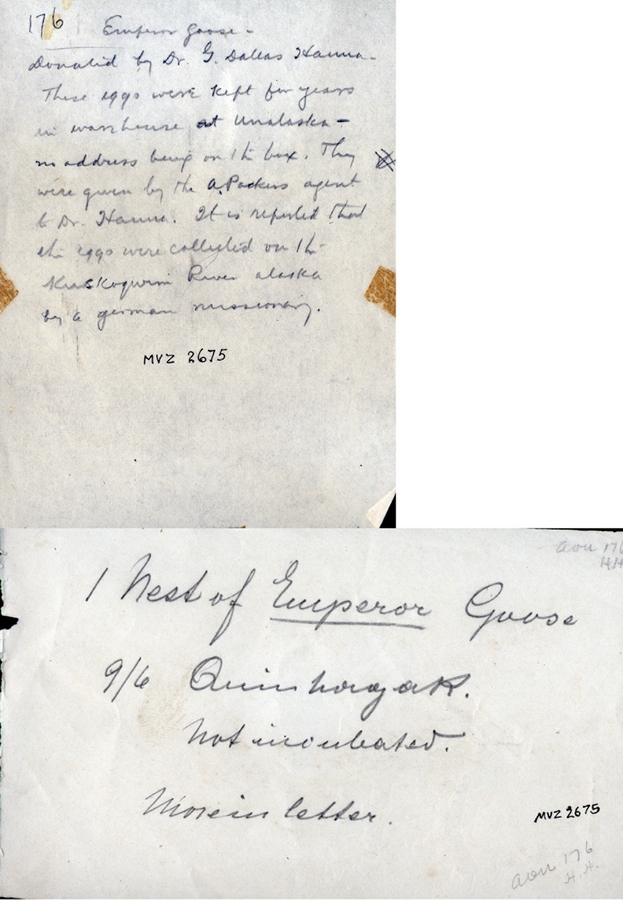 176 Emperor goose -
Donated by Dr. G. Dallas Hanna -
These eggs were kept for years
in warehouse at Unalaska -
no address being on th box. They
were given by the A. Packers agent
to Dr. Hanna. It is reported that
the eggs were collected on th
Kuskoqwim River alaska
by a german missionary.
MVZ 2675
aou 176
H.H.
1 Nest of Emperor Goose
9/6 Quinhagak.
Not incubated.
More in letter.
MVZ 2675
aou 176
H.H.